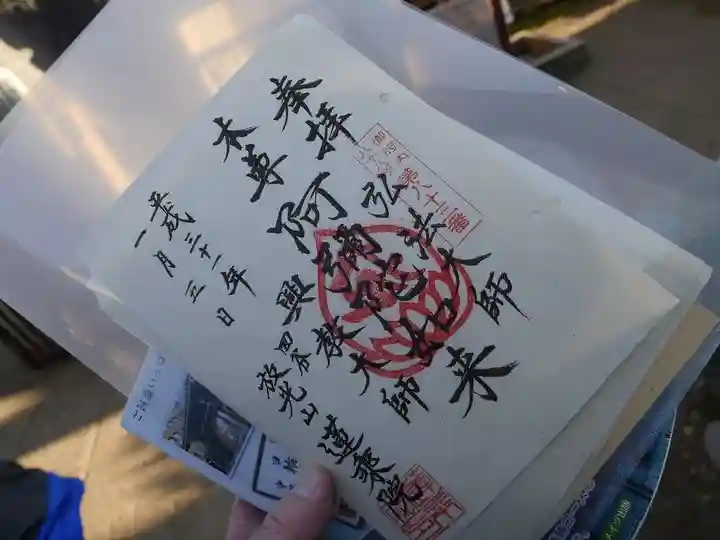 奉拝
第八十三番
弘法大師
本尊
阿彌陀如来
興教大師
四谷
放光山
蓮乗院
平成三十一年
一月五日